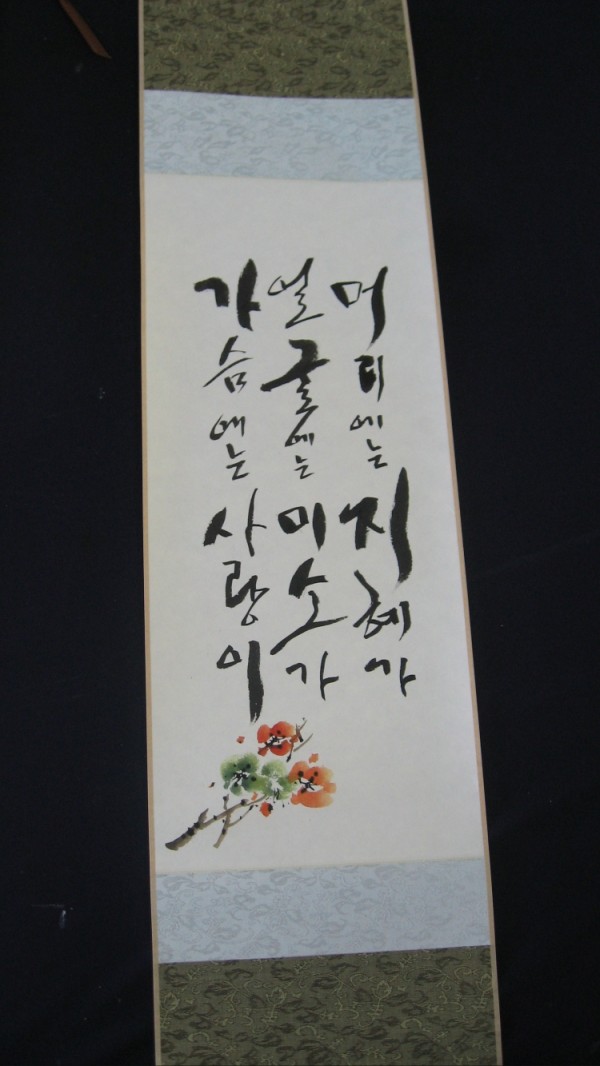 머리에는 지혜가
얼굴에는 미소가
가슴에는 사랑이